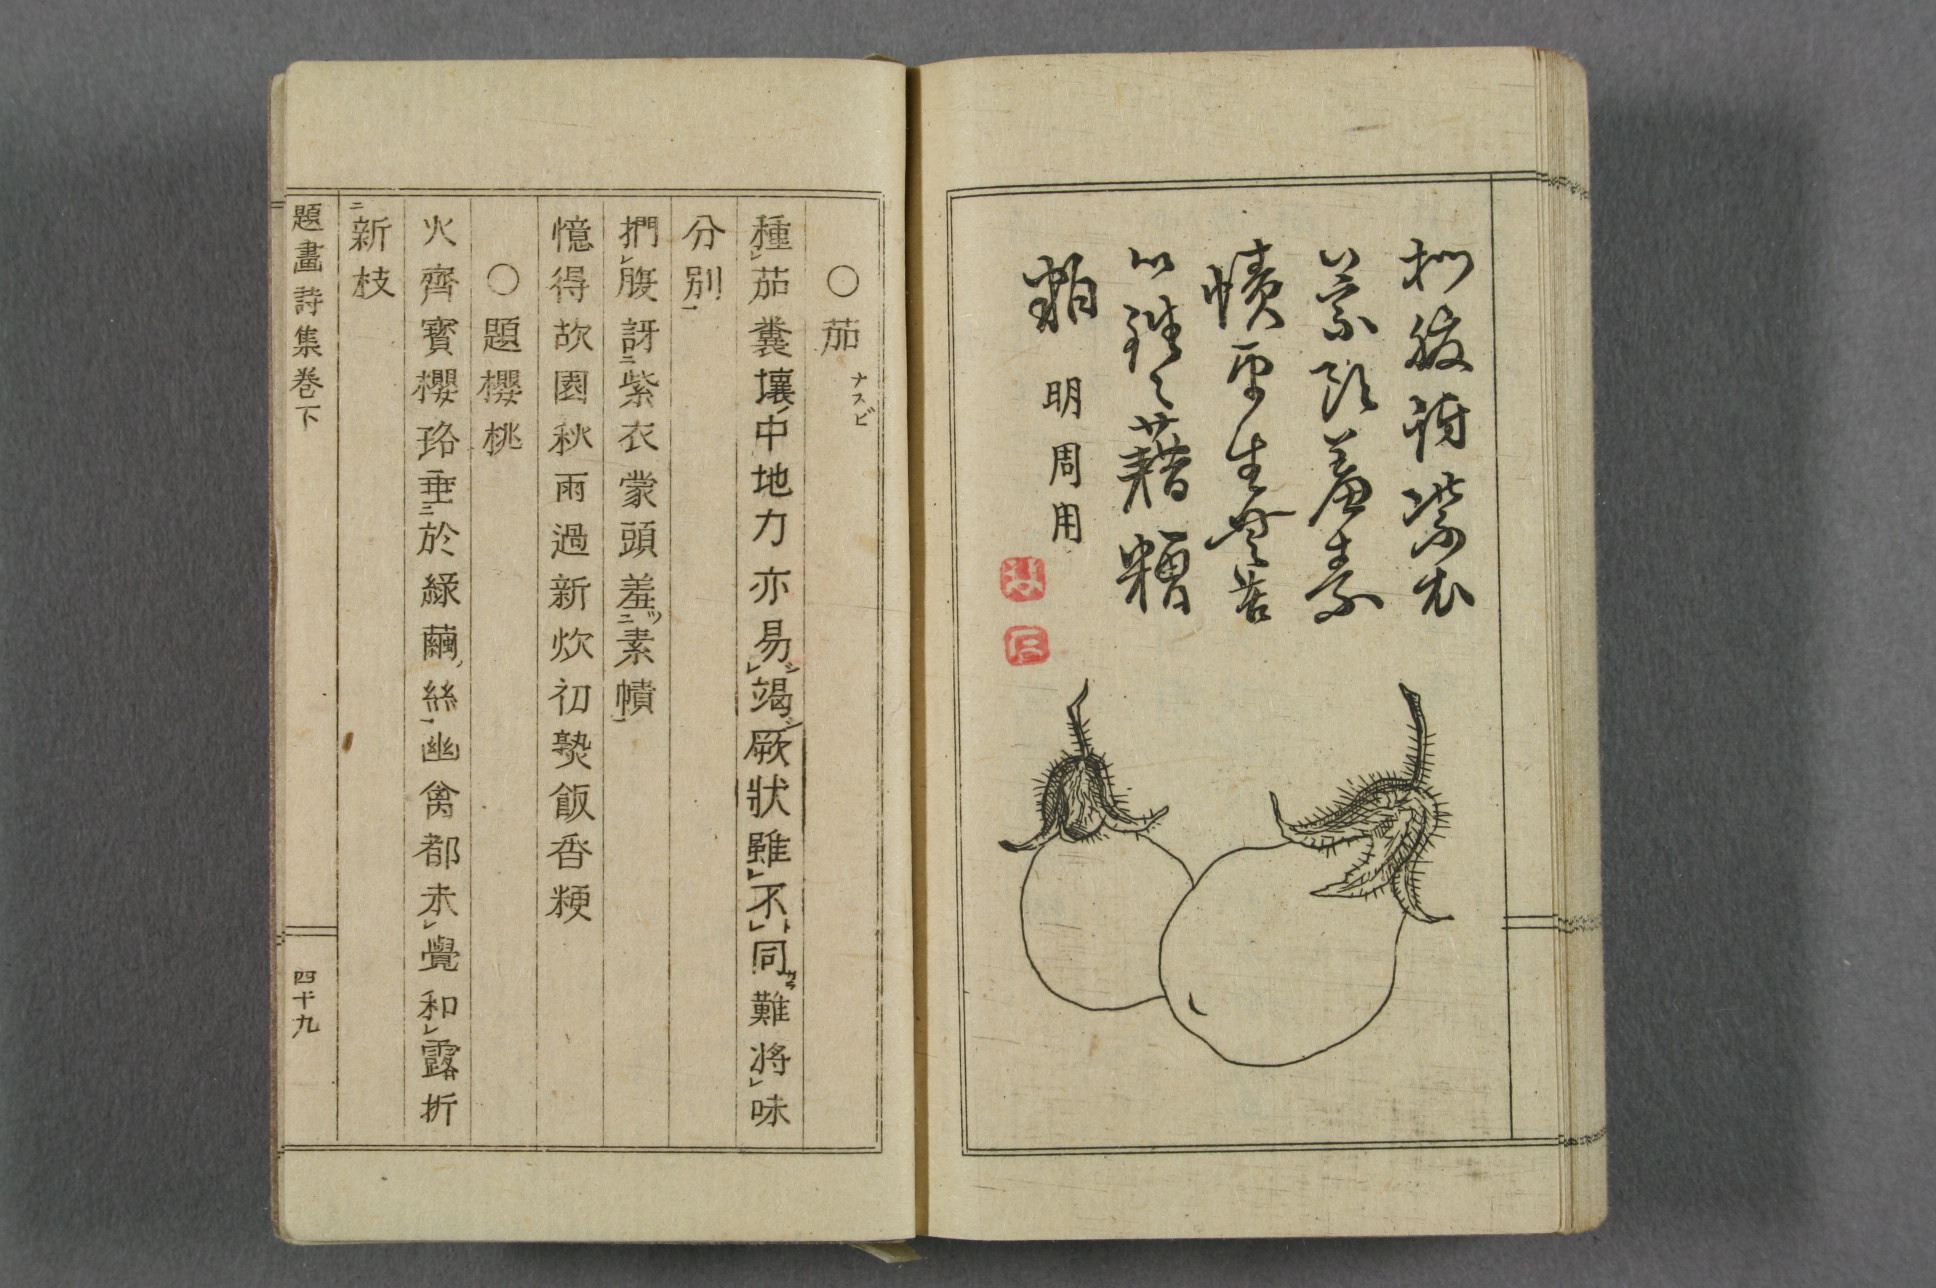 捫腹訝紫衣
蒙頭羞素
幘平生無苦
心藉糟
粕 明周用
○茄ナスビ
種茄糞壤中地力亦易竭厥狀雖不同難將味
分別
捫腹訝紫衣蒙頭羞素幘
憶得故園秋雨過新炊初熟飯香粳
○題櫻桃
火齊寶櫻珞垂於綠繭絲幽禽都未覺和露折
新枝
題畫詩集卷下 四十九